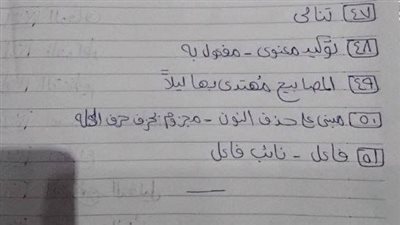 ٤٧ تنالى
٤٨ توكيد معنوى - مفعول به
٤٩ المصابيح مُهتدى بها ليلاً
٥٠ مبنى على حذف النون - مجزوم بحذف حرف العلة
٥١ فاعل - نائب فاعل